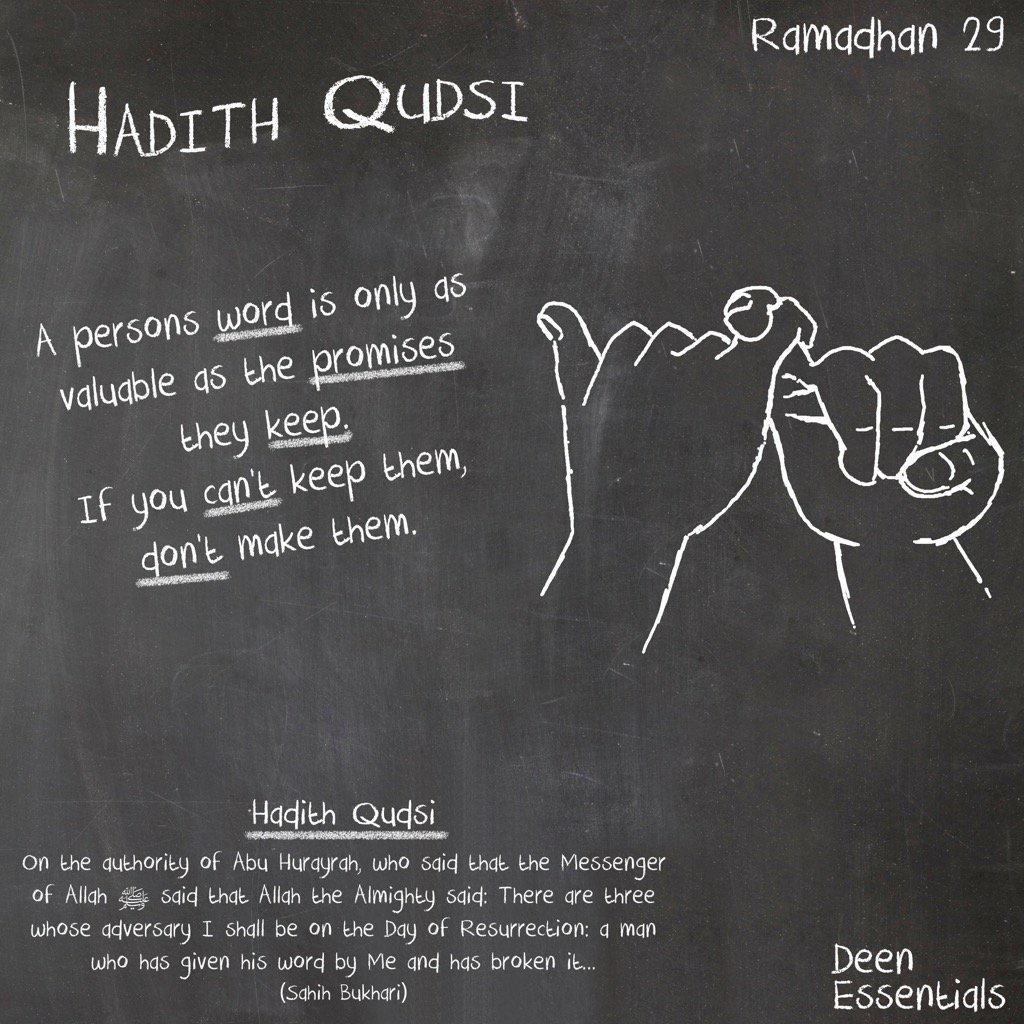 Ramadhan 29
HADITH QUDSI
A persons word is only as
valuable as the promises
they keep.
If you can't keep them,
don't make them.
Hadith Qudsi
On the authority of Abu Hurayrah, who said that the Messenger
of Allah ﷺ said that Allah the Almighty said: There are three
whose adversary I shall be on the Day of Resurrection: a man
who has given his word by Me and has broken it...
(Sahih Bukhari)
Deen
Essentials